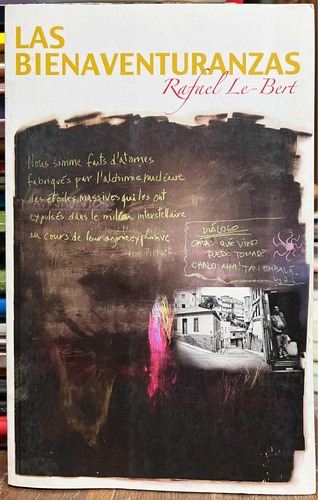 LAS
BIENAVENTURANZAS
Rafael Le-Bert
Nous somme faits d'atomes
fabriqués par l'alchimie nucléaire
des étoiles massives qui les ont
expulsés dans le milieu interstellaire
au cours de leur agonie explosive.
DIÁLOGO
QUÉ VINO
PUEDO TOMAR?
CHALO AHH, TAN EMBALA